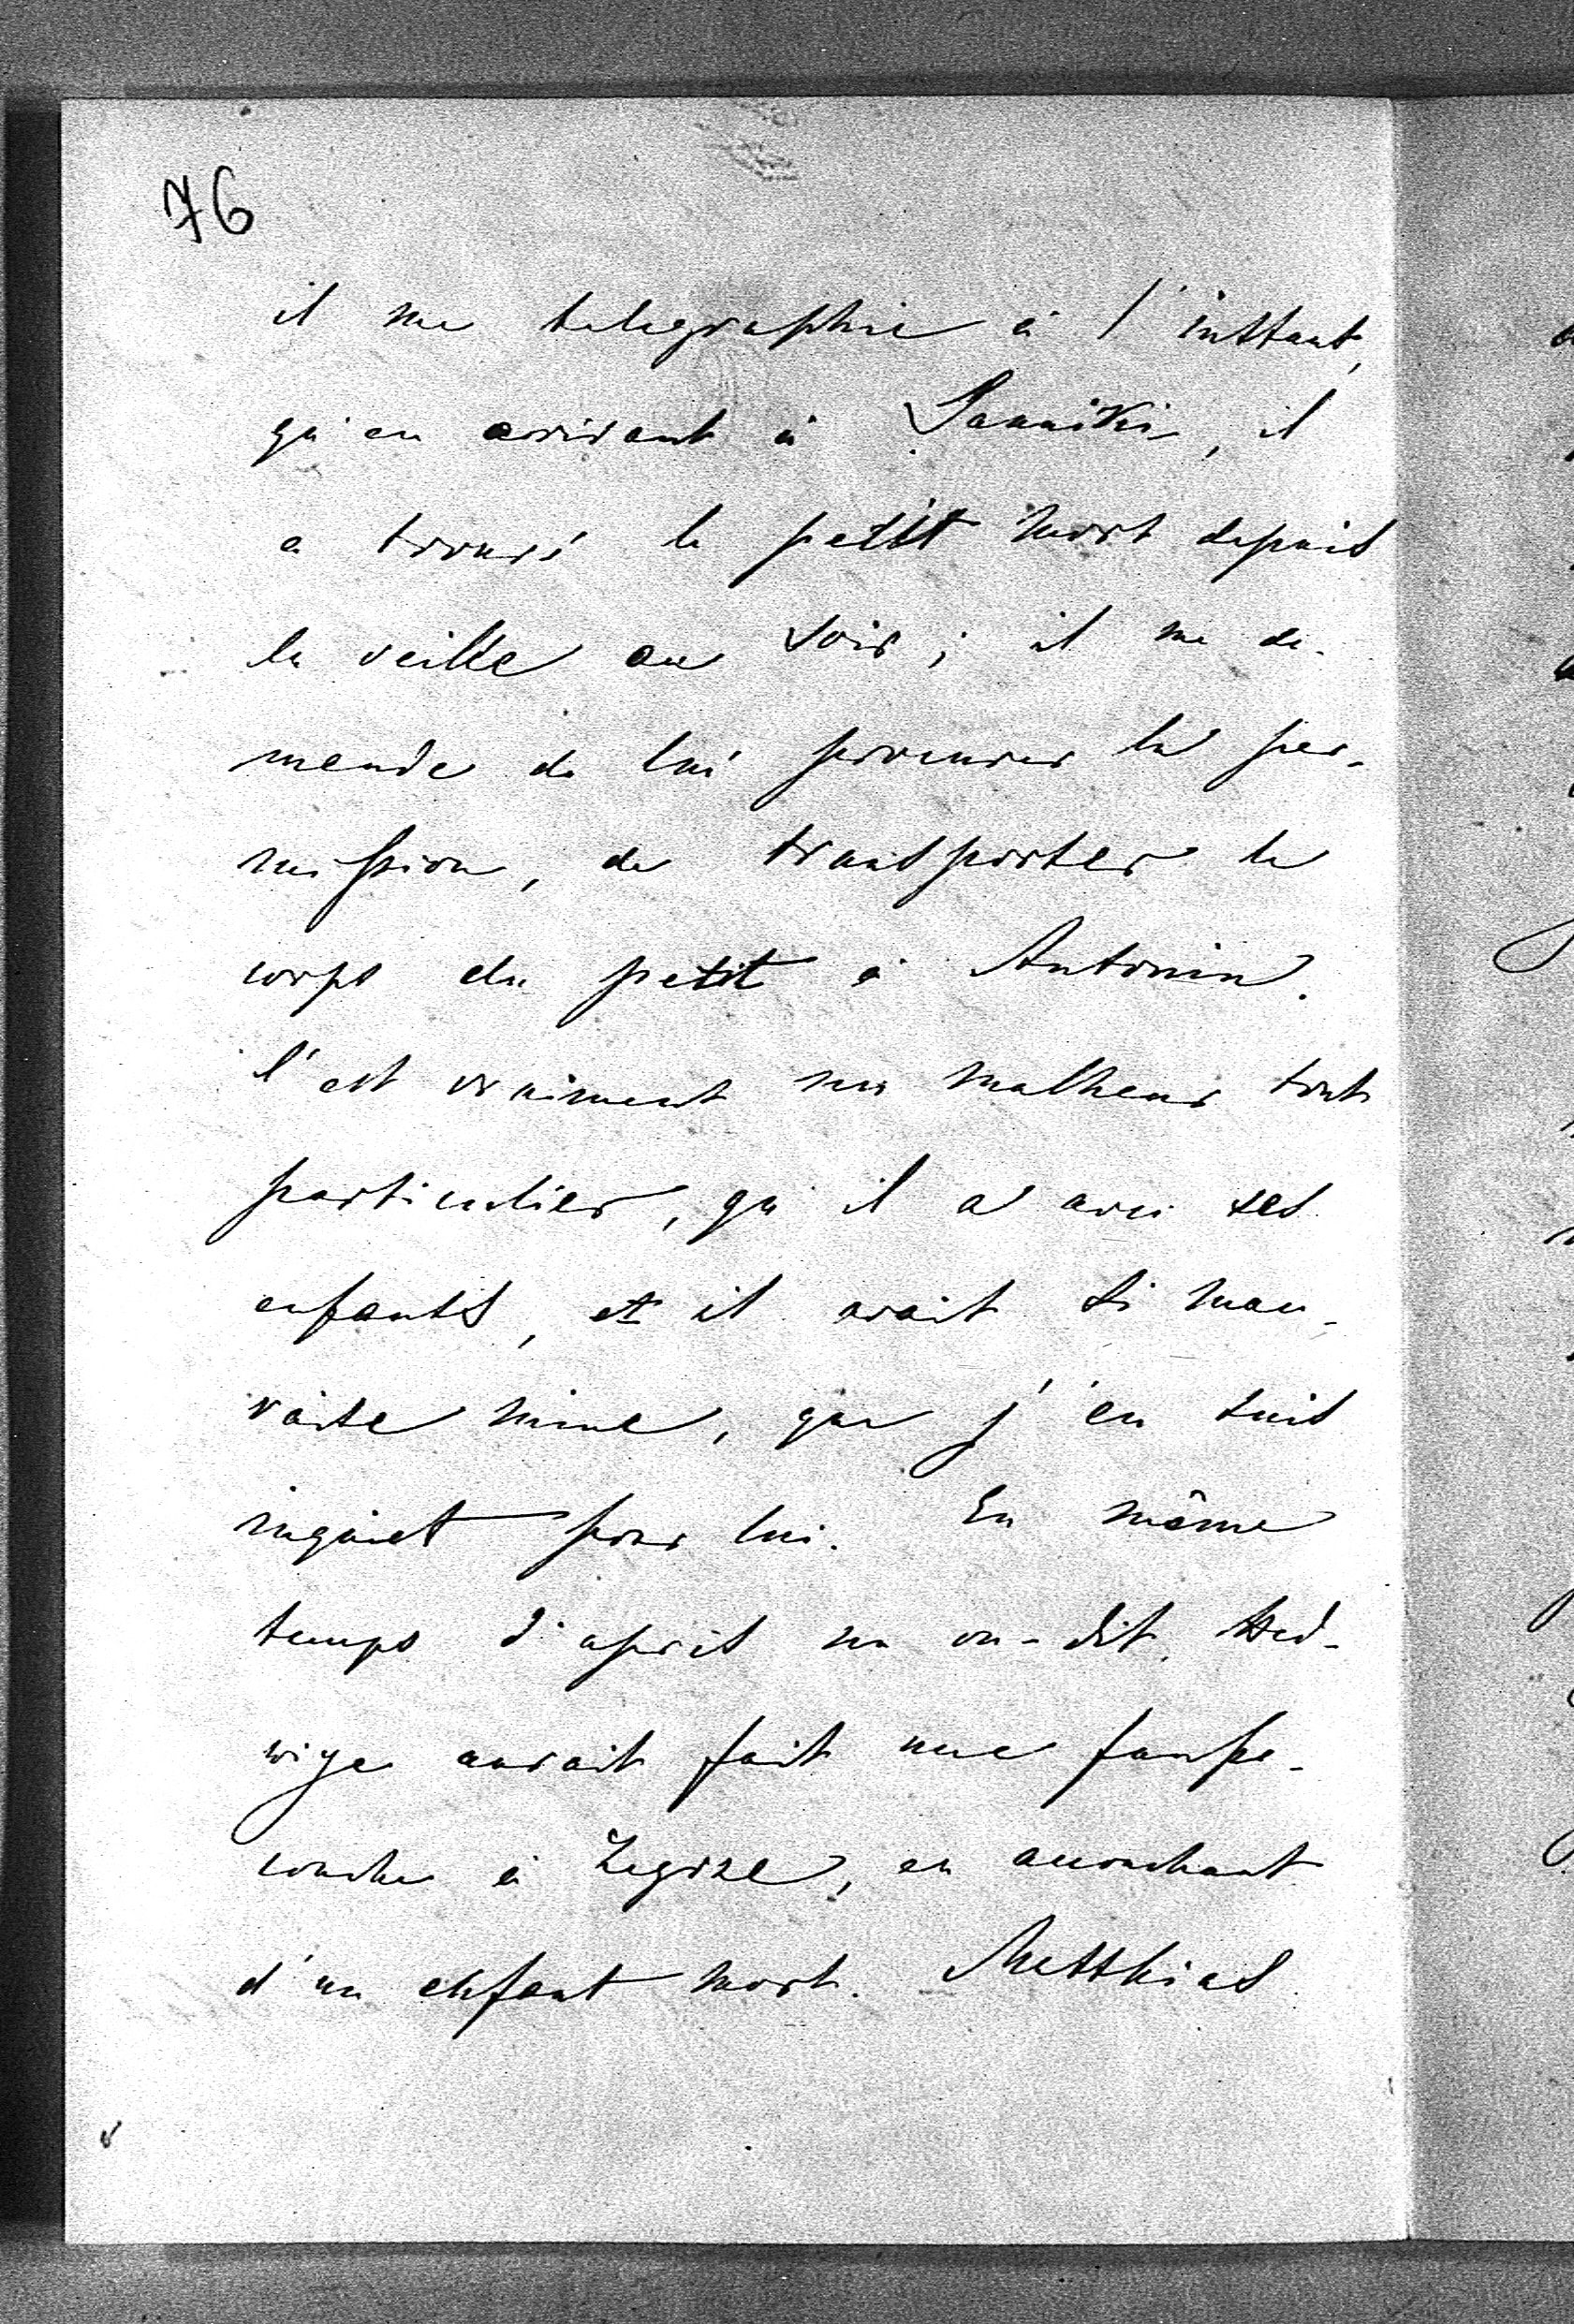 76
il me telegraphie à l'instant,
qu'en arrivant à Sanniki, il
a trouvé le petit mort depuis
la veille au soir; il me de-
mande de lui procurer la per-
mission, de transporter le
corps du petit à Antonin.
C'est vraiment un malheur tout
particulier, qu'il a avec ses
enfants, et il avait si mau-
vaise mine, que j'en suis
inquiet pour lui. En même
temps d'après un on-dit, Hed-
wige aurait fait une fausse-
couche à Zegrze, en accouchant
d'un enfant mort. Matthias